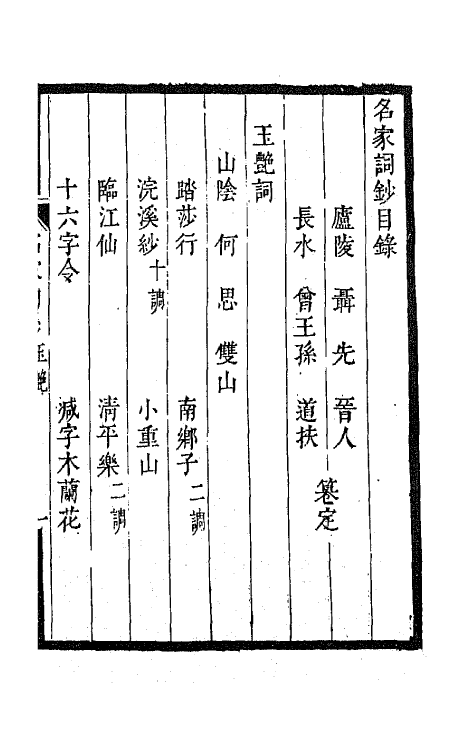 名家詞鈔目錄
廬陵 聶 先 晉人
長水 曾王孫 道扶
篹定
玉豔詞
山陰 何 思 雙山
踏莎行 南鄉子二調
浣溪紗十調 小重山
臨江仙 清平樂二調
十六字令 減字木蘭花
玉豔 一